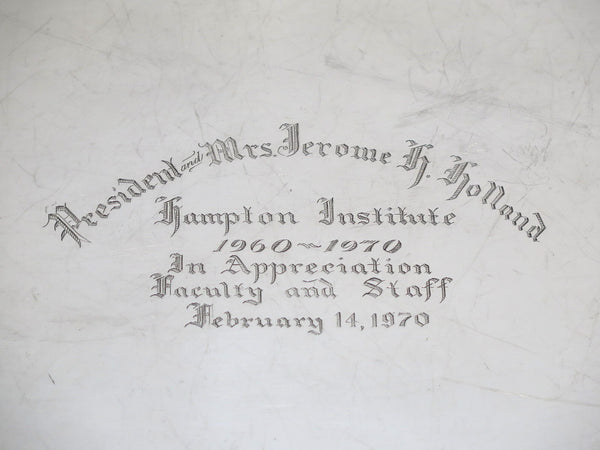 President and Mrs. Jerome H. Holland
Hampton Institute
1960~1970
In Appreciation
Faculty and Staff
February 14, 1970